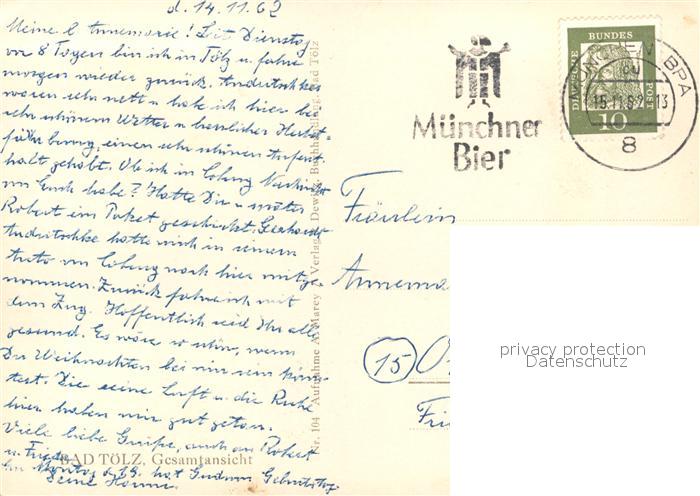 d. 14.11.62
Meine l. Annemarie! Seit Dienstag
vor 8 Tagen bin ich in Tölz u. fahre
morgen wieder zurück. Andritschkes
waren sehr nett u. habe ich hier bei
sehr schönem Wetter u. herrlicher Herbst
färbung einen sehr schönen Aufent
halt gehabt. Ob ich in Coburg Nachricht
von Euch habe? Hatte Dir u. 
Robert ein Paket geschickt. Gerhardt
Andritschke hatte mich in seinem
Auto von Coburg nach hier mitge
nommen. Zurück fahre ich mit
dem Zug. Hoffentlich seid Ihr alle
gesund. Es wäre so schön, wenn
Du Weihnachten bei mir sein könn
test. Die seine Luft u. die Ruhe
hier haben mir gut getan.
Viele liebe Grüße, auch an Robert
u. Frieda
BAD TÖLZ, Gesamtansicht
Am Montag d. 19. hat Gudrun Geburtstag
Deine Hanne
Nr. 104 Aufnahme A. Marey Verlag Dewitz, Buchhandlung, Bad Tölz
Münchner
Bier
MÜNCHEN BPA
15.11.62-13
8
DEUTSCHE BUNDES POST
10
Fräulein
Annema
(15)
privacy protection
Datenschutz